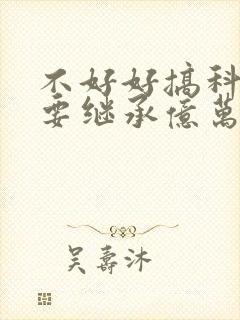 不好好搞科
要继承億萬
吴壽沐